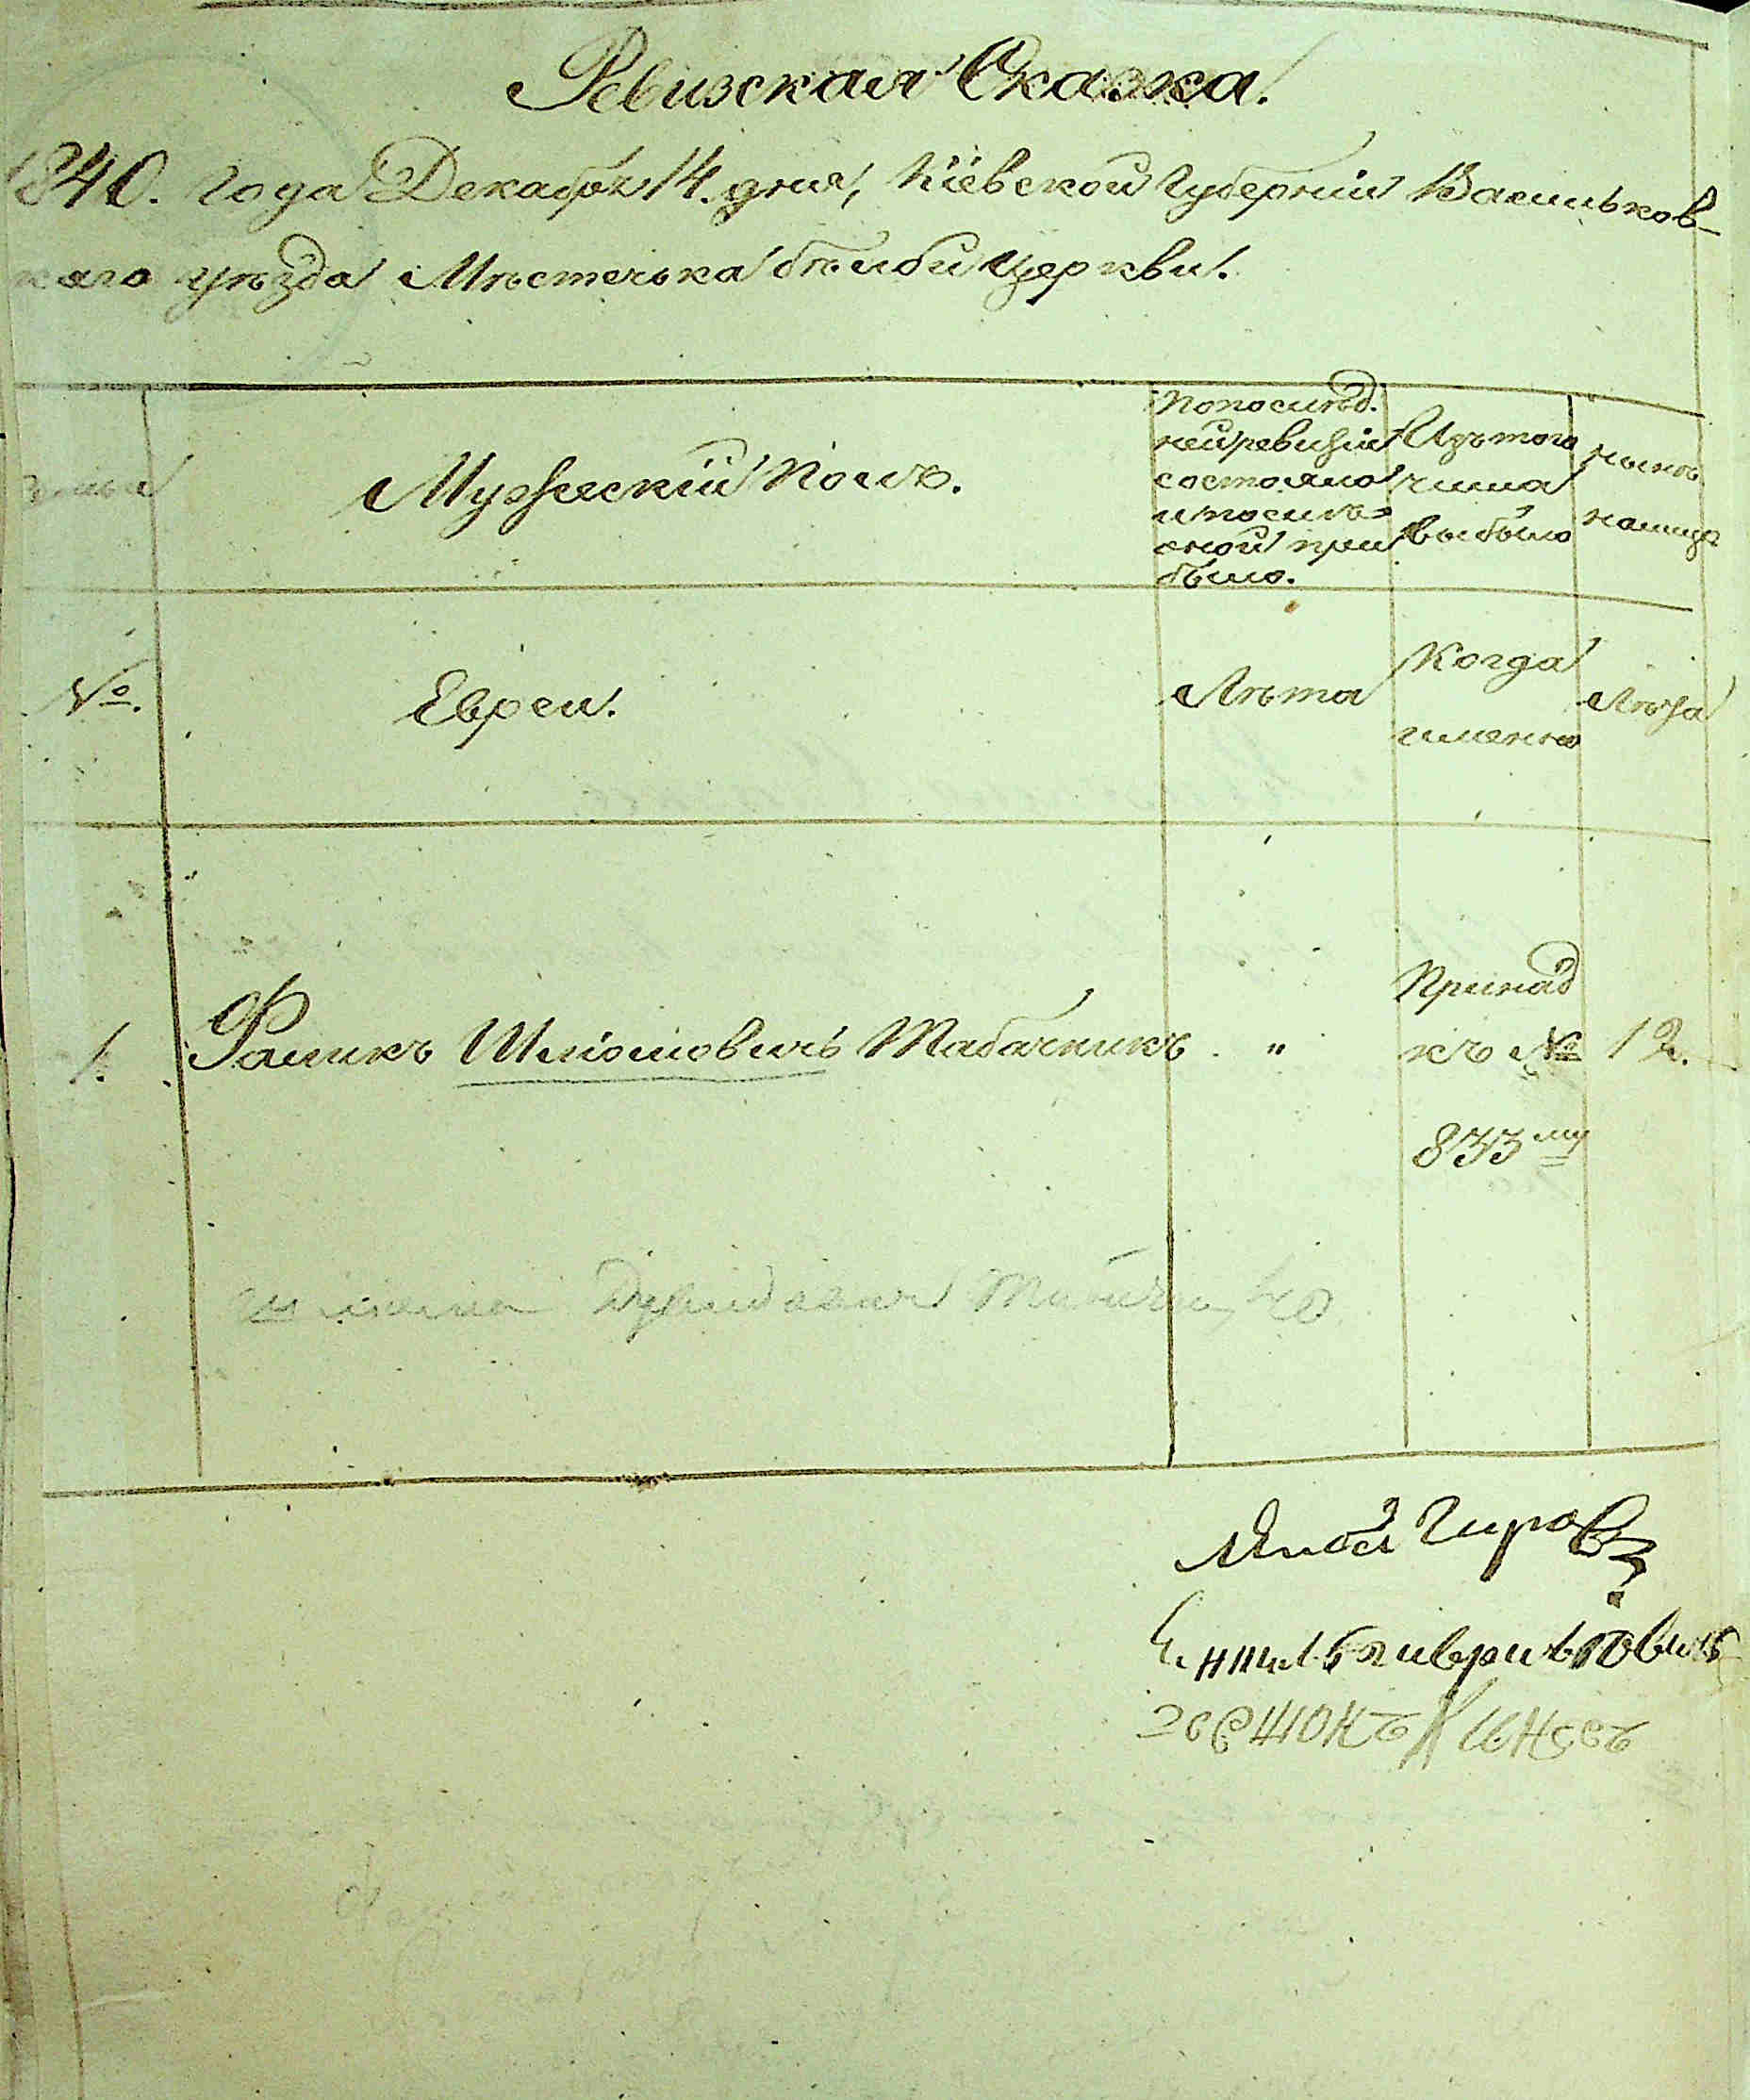 Ревизская Сказка.
1840. года Декабря 14. дня, Кіевской Губерніи Васильков-
каго уѣзда Мѣстечька бѣлой Церкви.
Мужескій Полъ.
По послѣд.
ней ревизіи
состояло
и послѣ
оной при
было.
Изъ того
числа
выбыло
нынѣ
на лицо
№.
Евреи.
Лѣта
Когда
именно
Лѣта
1. Фаликъ Шліомовичь Табачникъ. "
Принад
къ №
833му
12.